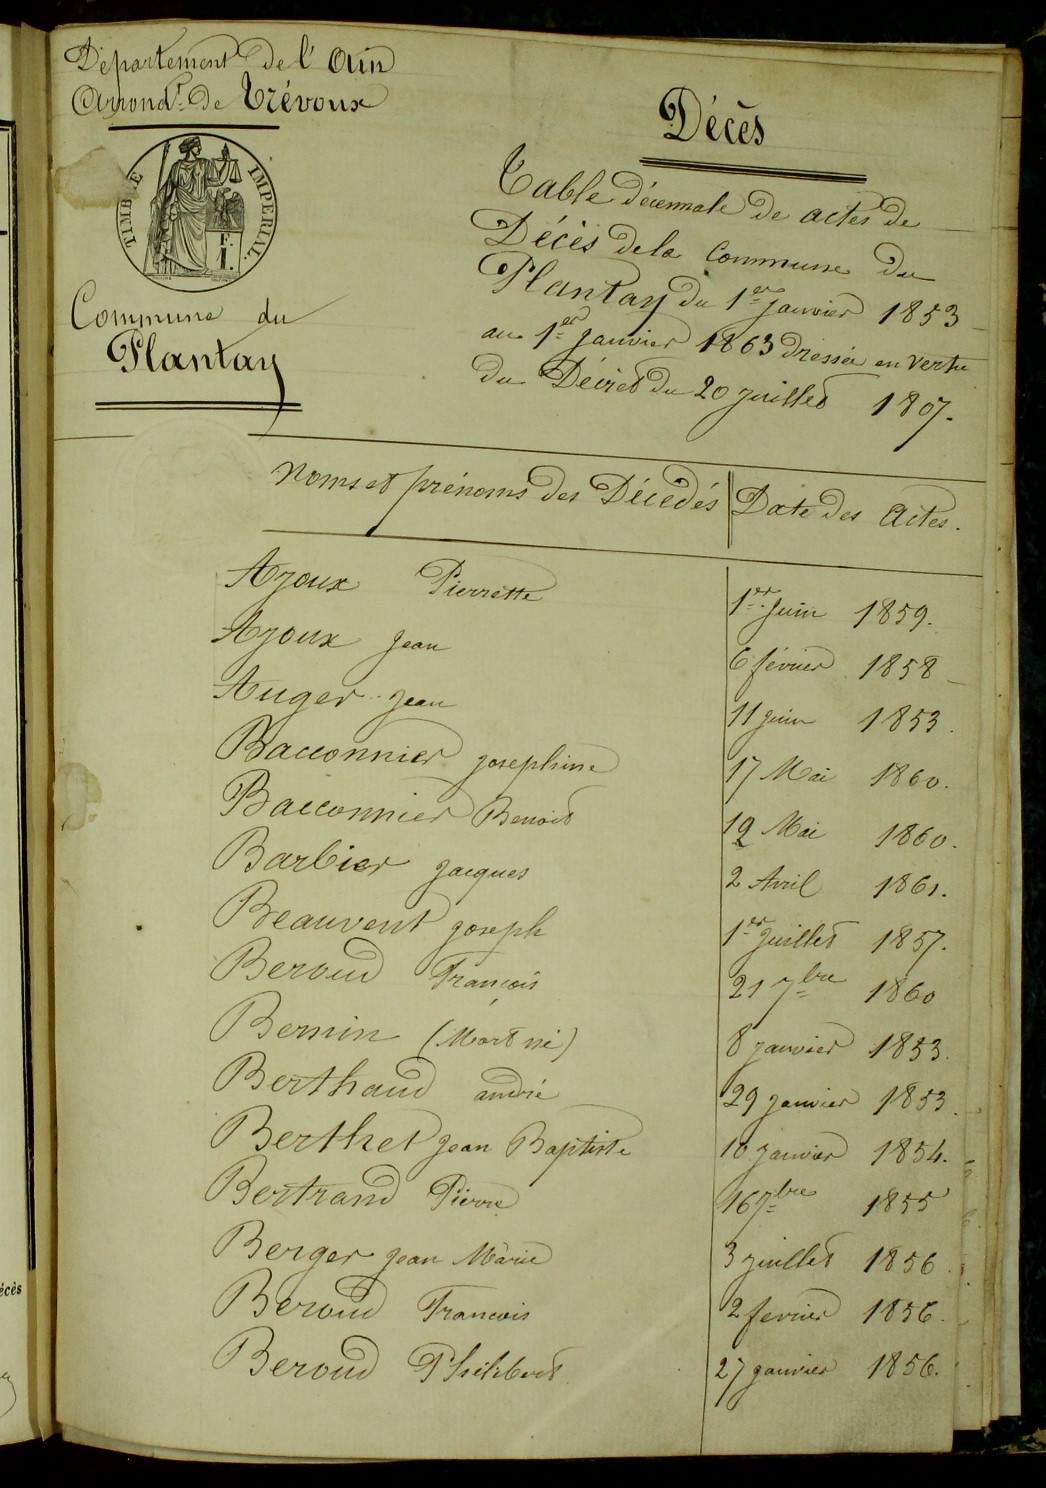 Département de l'Ain
Arrond.t de Trévoux
TIMBRE IMPERIAL.
F.
I.
Commune du
Plantay
Décès
Table décennale de actes de
Décès de la Commune du
Plantay du 1er Janvier 1853
au 1er Janvier 1863 dressée en vertu
du Décret du 20 juillet 1807.
Noms et prénoms des Décédés | Date des Actes.
Ajoux Pierrette 1er Juin 1859.
Ajoux Jean 6 février 1858
Auger Jean 11 juin 1853.
Bacconnier Josephine 17 Mai 1860.
Bacconnier Benoit 19 Mai 1860.
Barbier Jacques 2 Avril 1861.
Beauvent Joseph 1er Juillet 1857.
Beroud François 21 7bre 1860
Bernin (Mort né) 8 janvier 1853.
Berthaud andré 29 janvier 1853.
Berthet Jean Baptiste 10 janvier 1854.
Bertrand Pierre 16 7bre 1855
Berger Jean Marie 3 juillet 1856.
Beroud Francois 2 fevrier 1856.
Beroud Philibert 27 janvier 1856.
écès